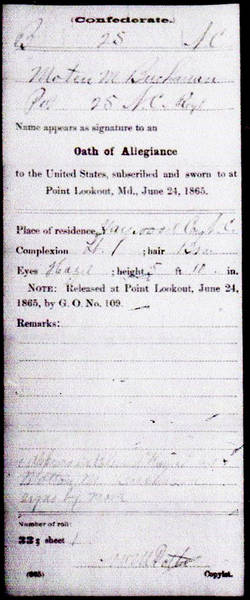 (Confederate.)
B 25 N C
M. Buchanan
25 N.C. Reg't
Name appears as signature to an
Oath of Allegiance
to the United States, subscribed and sworn to at
Point Lookout, Md., June 24, 1865.
Place of residence, Haywood Co., N.C.
Complexion ; hair
Eyes Hazel ; height, 5 ft. 10 in.
NOTE: Released at Point Lookout, June 24,
1865, by G. O. No. 109.
Remarks:
by mark
Number of roll:
sheet 1
Copyist.